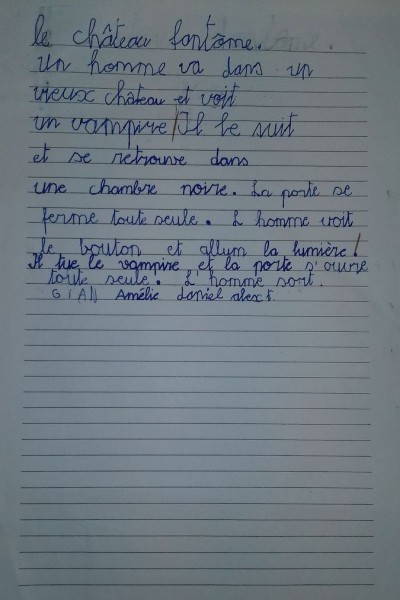 le château fantôme.
un homme va dans un
vieux château et voit
un vampire/Il le suit
et se retrouve dans
une chambre noire. La porte se
ferme toute seule. L homme voit
le bouton et allum la lumière!
Il tue le vampire et la porte s'ouvre
toute seule. L homme sort.
GIAN Amélie daniel alext.